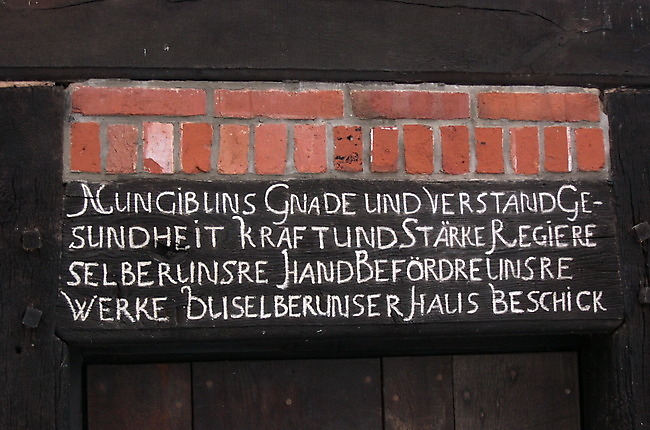 NUN GIB UNS GNADE UND VERSTAND GE-
SUNDHEIT KRAFT UND STÄRKE REGIERE
SELBER UNSRE HAND BEFÖRDRE UNSRE
WERKE DU SELBER UNSER HAUS BESCHICK